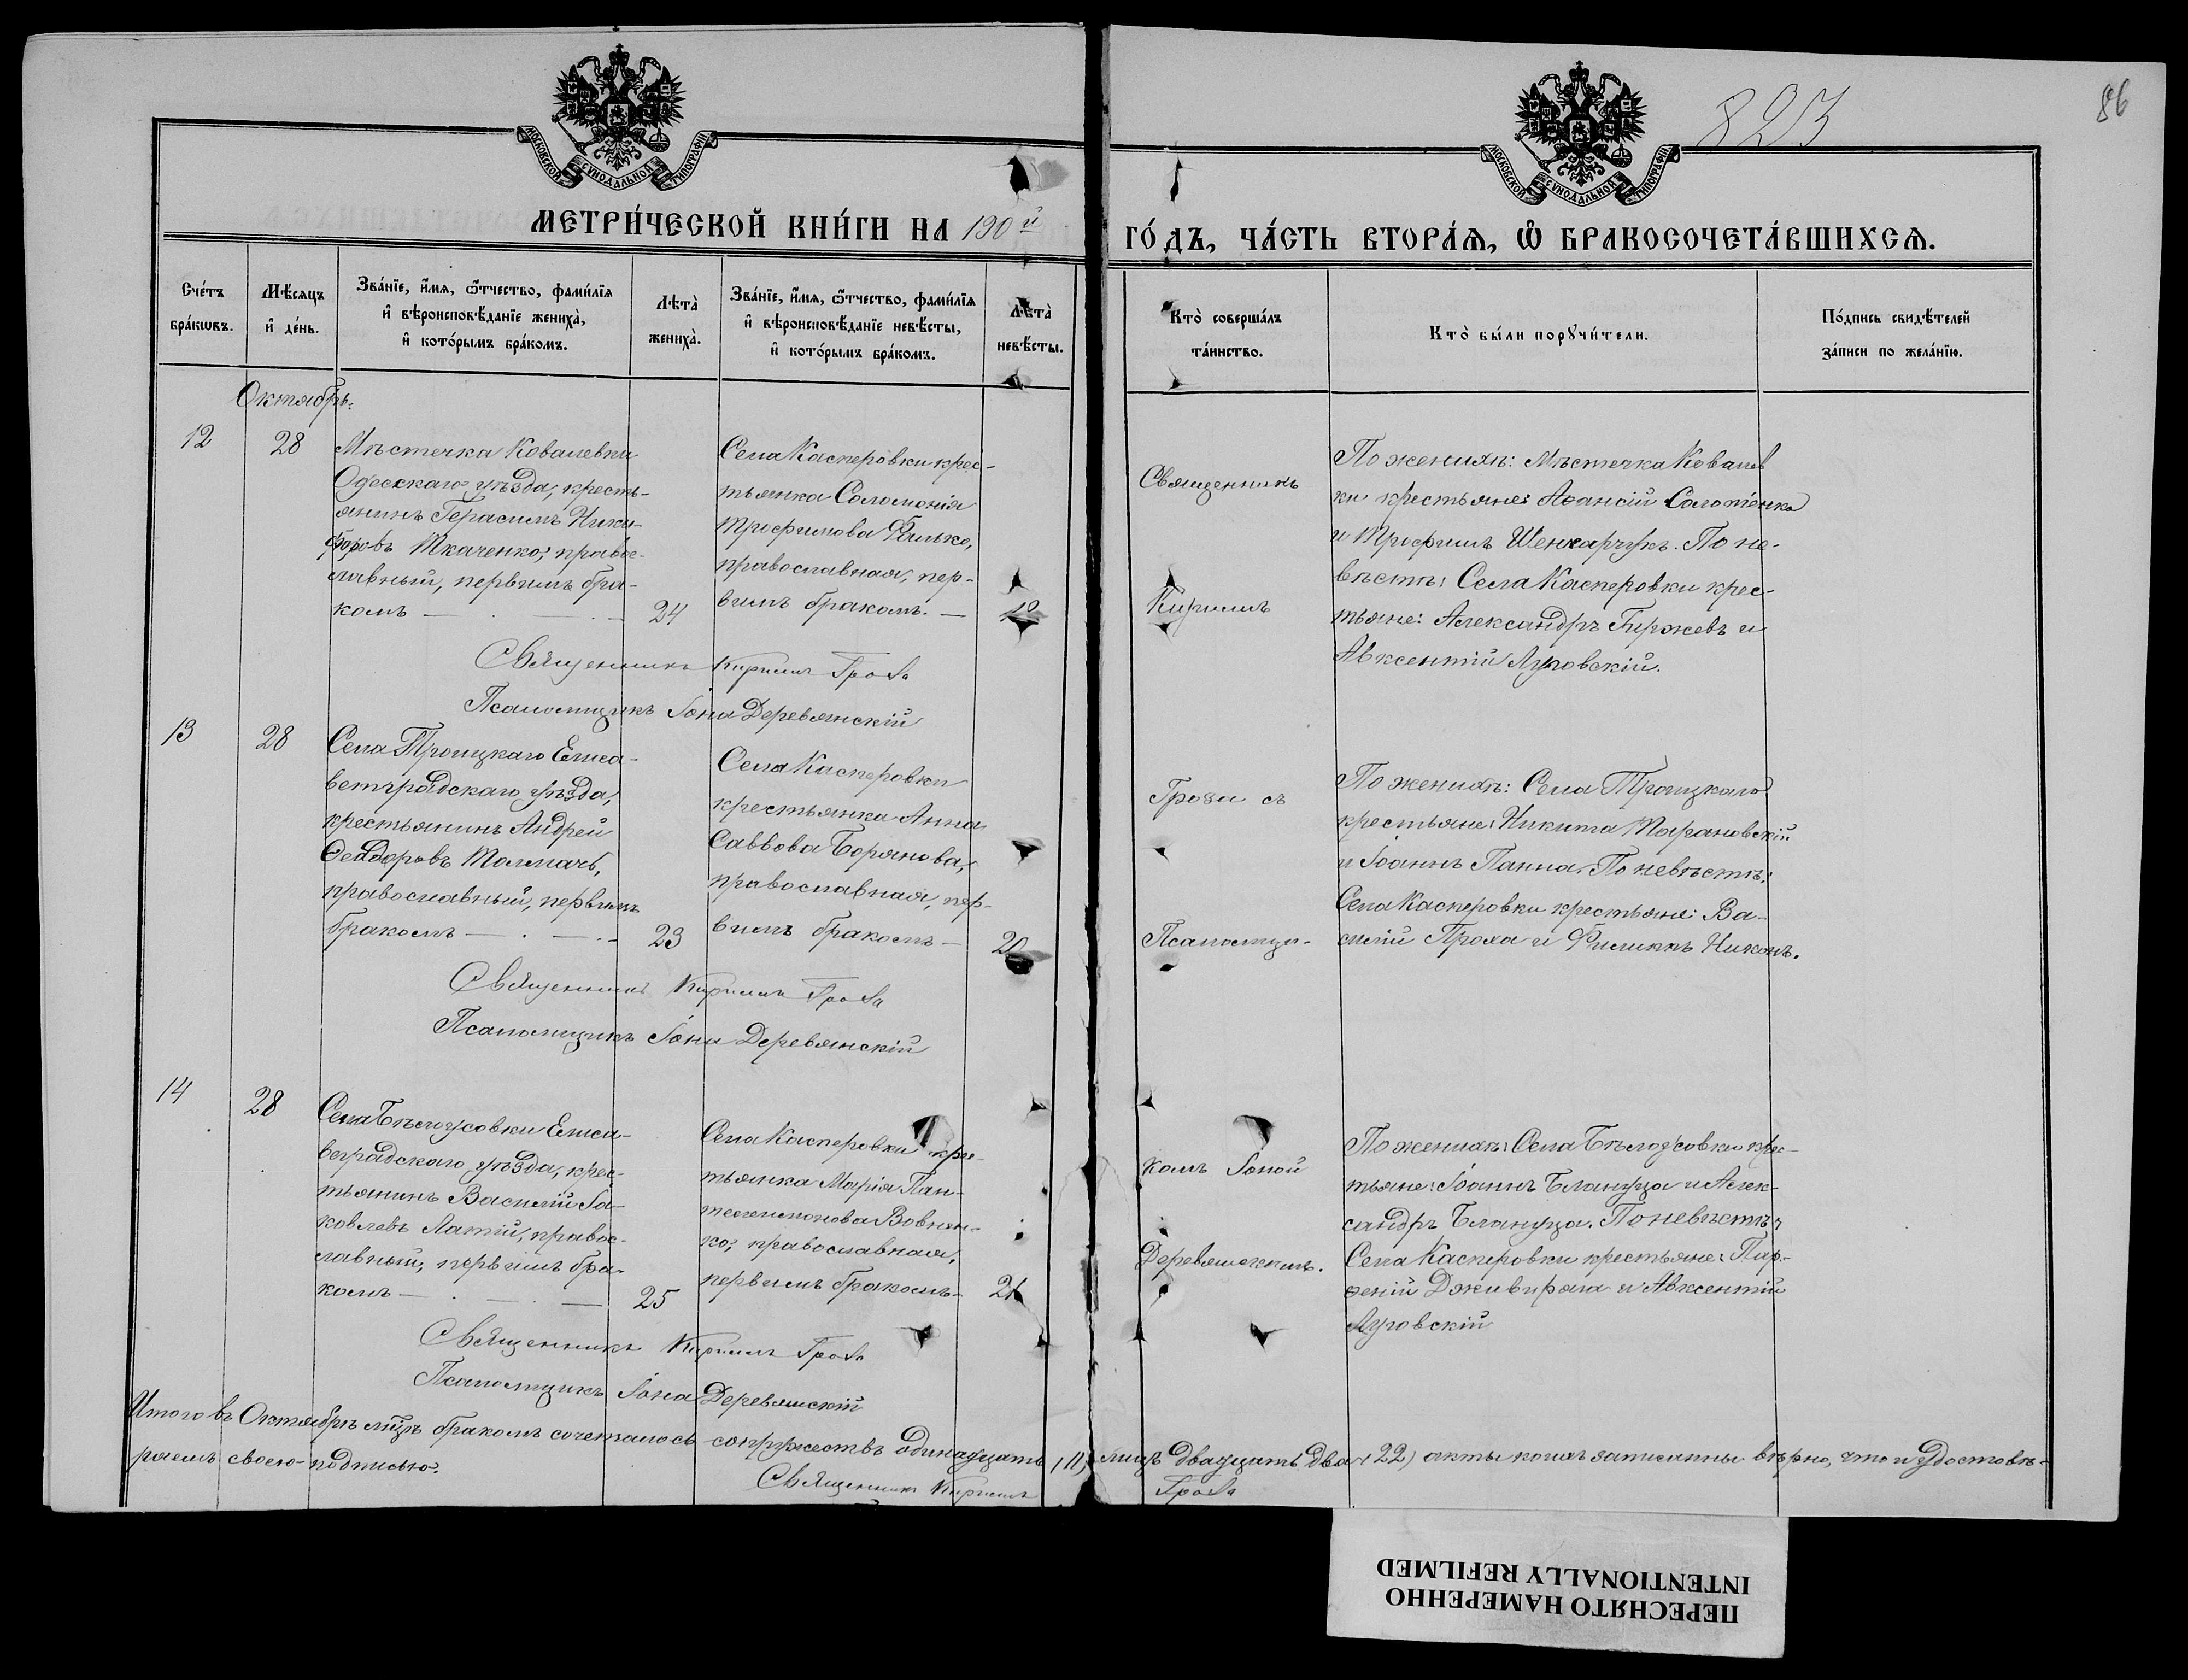 823
86
МОСКОВСКОЙ СѴНОДАЛЬНОЙ ТИПОГРАФІИ
МОСКОВСКОЙ СѴНОДАЛЬНОЙ ТИПОГРАФІИ
МЕТРИ́ЧЕСКОЙ КНИ́ГИ НА 190й
ГО́ДЪ, ЧА́СТЬ ВТОРА́Ѧ, Ѽ БРАКОСОЧЕТА́ВШИХСѦ.
Сче́тъ
бра́кѡвъ.
Мѣ́сяцъ
и҆ де́нь.
Зва́нїе, и҆́мѧ, ѻ҆́тчество, фами́лїѧ
и҆ вѣроисповѣ́данїе жениха̀,
и҆ кото́рымъ бра́комъ.
Лѣта̀
жениха̀.
Зва́нїе, и҆́мѧ, ѻ҆́тчество, фами́лїѧ
и҆ вѣроисповѣ́данїе невѣ́сты,
и҆ кото́рымъ бра́комъ.
Лѣта̀
невѣ́сты.
Кто̀ соверша́лъ
та́инство.
Кто̀ бы́ли порꙋчи́тели.
По́дпись свидѣ́телей
за́писи по жела́нїю.
Октябрь.
12
28
Мѣстечка Ковалевки
Одесскаго уѣзда, кресть-
янинъ Герасимъ Ники-
форовъ Ткаченко, правос-
лавный, первымъ бра-
комъ
24
Села Касперовки крес-
тьянка Соломонія
Трофимова
православная, пер-
вымъ бракомъ.
Священникъ
Кириллъ
По женихѣ: Мѣстечка Ковалев
ки крестьяне: Аѳансій Солотенко
и Трофимъ Шенкарукъ. По не-
вѣстѣ: Села Касперовки крес-
тьяне: Александръ Гиржевъ и
Авксентій Луговскій.
Священникъ Кириллъ Гроза
Псаломщикъ Іона Деревянскій
13
28
Села Троицкаго Елиса-
ветградскаго уѣзда,
крестьянинъ Андрей
Ѳеодоровъ Толмачъ,
православный, первымъ
бракомъ
23
Села Касперовки
крестьянка Анна
Саввова Борянова,
православная, пер-
вымъ бракомъ
20
Гроза съ
Псаломщи-
По женихѣ: Села Троицкаго
крестьяне: Никита Тарановскій
и Іоаннъ Панна. По невѣстѣ:
Села Касперовки крестьяне: Ва-
силій Проха и Филиппъ Никонъ.
Священникъ Кириллъ Гроза
Псаломщикъ Іона Деревянскій
14
28
Села Бѣлоусовки Елиса-
веградскаго уѣзда, крес-
тьянинъ Василій Іа-
ковлевъ Латій, правос-
лавный, первымъ бра-
комъ
25
Села Касперовки крес-
тьянка Марія Пан-
телеимонова Вовнян-
ко, православная,
первымъ бракомъ
21
комъ Іоной
Деревянскимъ.
По женихѣ: Села Бѣлоусовки крес-
тьяне: Іоаннъ Блануца и Алек-
сандръ Блануца. По невѣстѣ:
Села Касперовки крестьяне: Пар-
ѳеній Дживирага и Авксентій
Луговскій
Священникъ Кириллъ Гроза
Псаломщикъ Іона Деревянскій
Итого въ Октябрѣ мѣс. бракомъ сочеталось супружествъ одинадцать (11) лицъ двадцать два (22) акты коихъ записанны вѣрно, что и удостовѣ-
ряемъ своею подписью.
Священникъ Кириллъ Гроза
ПЕРЕСНЯТО НАМЕРЕННО
INTENTIONALLY REFILMED